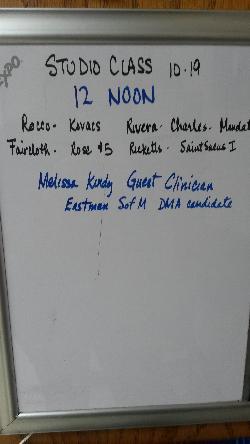 EXPO
STUDIO CLASS 10.19
12 NOON
Rocco - Kovacs Rivera - Charles - Mandat
Faircloth - Rose #5 Ricketts - Saint Saens I
Melissa Kordy Guest Clinician
Eastman S of M DMA candidate